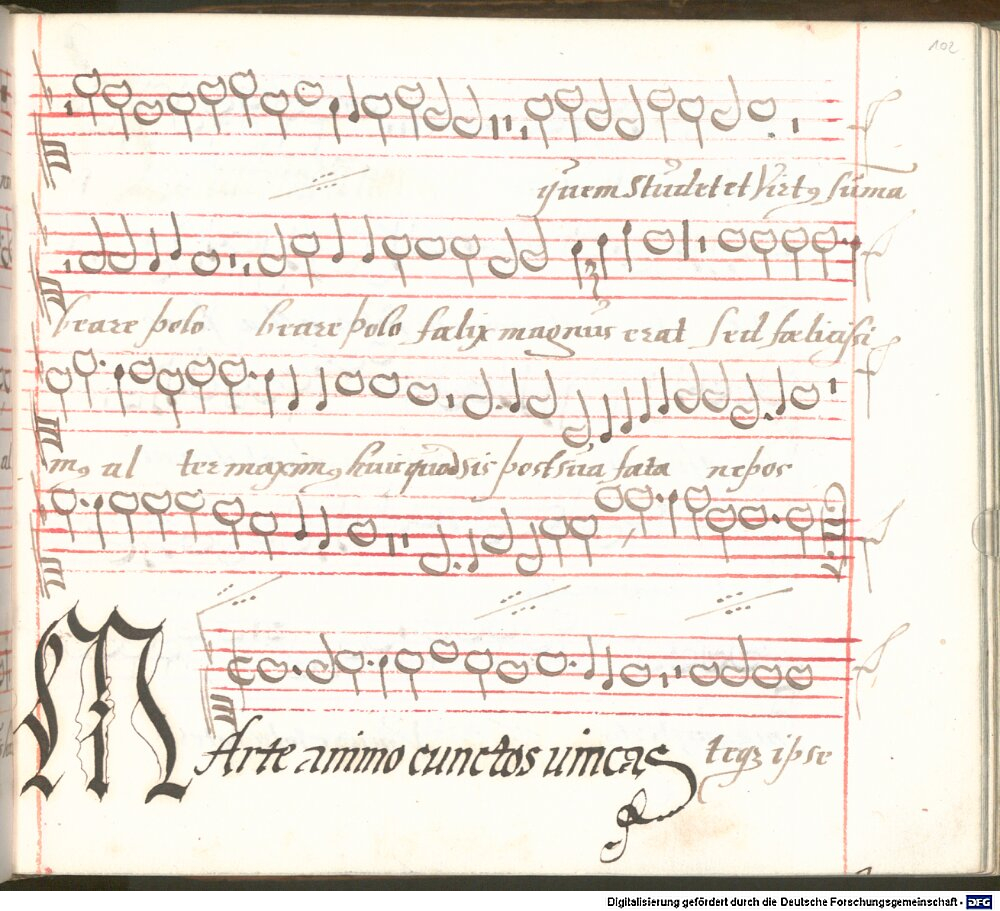 102
quem studet et Virtꝰ sūma
beare polo beare polo fœlix magnus erat sed fœlicissi
mꝰ al ter maximꝰ huic quod sis post sua fata nepos
MArte animo cunctos uincas teqꝫ ipse
Digitalisierung gefördert durch die Deutsche Forschungsgemeinschaft - DFG